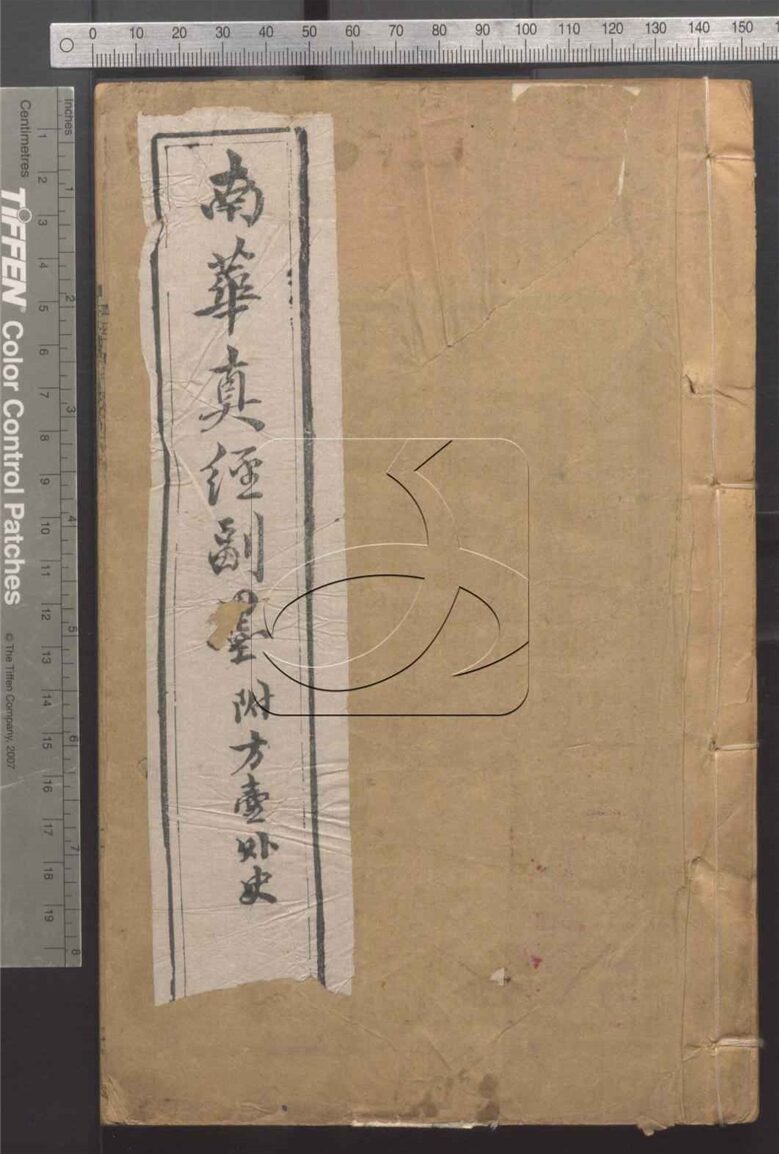 0 10 20 30 40 50 60 70 80 90 100 110 120 130 140 150
Inches
1 2 3 4 5 6 7 8
Centimetres
1 2 3 4 5 6 7 8 9 10 11 12 13 14 15 16 17 18 19
TIFFEN Color Control Patches
© The Tiffen Company, 2007
南華真經副墨附方壺外史